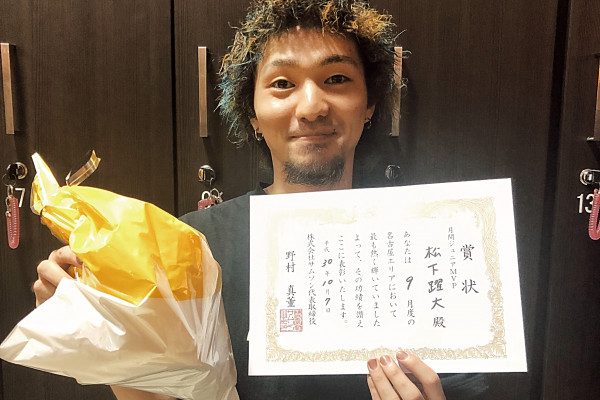 賞状
月間ジュニアMVP
松下 躍大 殿
あなたは 9 月度の
名古屋エリアにおいて
最も熱く輝いていました
よって、その功績を讃え
ここに表彰いたします。
平成 30年 10月 7日
株式会社サムソン代表取締役
野村 真菫
17
13